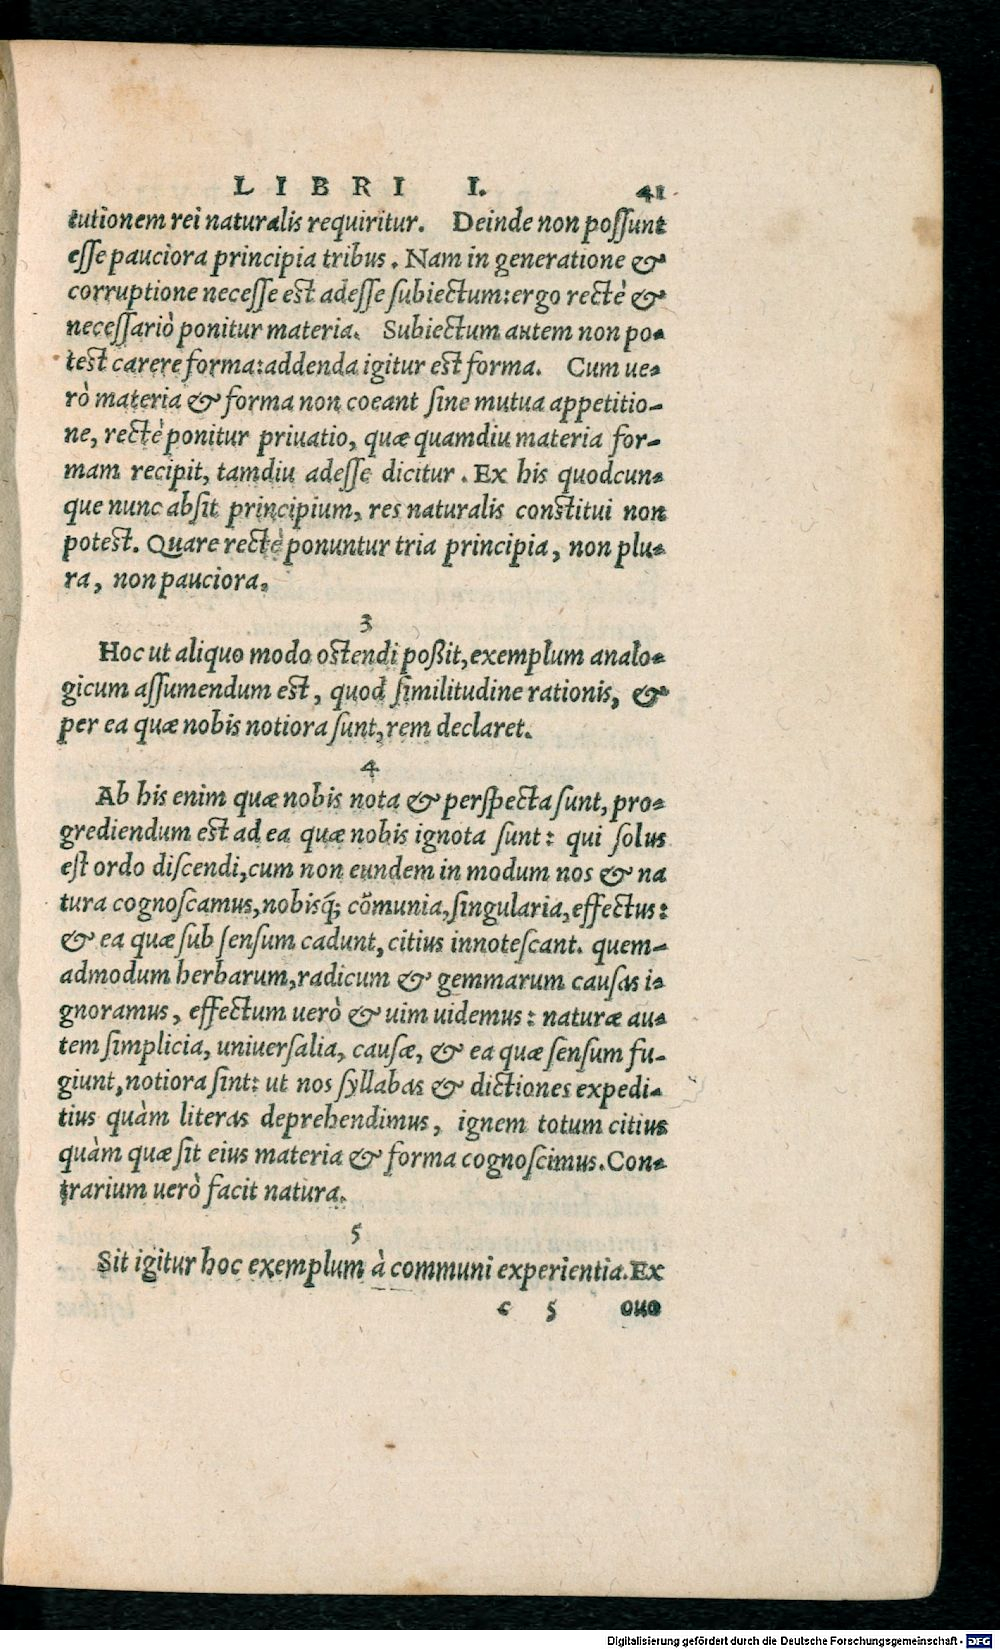 LIBRI I. 41
tutionem rei naturalis requiritur. Deinde non possunt
esse pauciora principia tribus. Nam in generatione &
corruptione necesse est adesse subiectum: ergo rectè &
necessariò ponitur materia. Subiectum autem non po-
test carere forma: addenda igitur est forma. Cum ue-
rò materia & forma non coeant sine mutua appetitio-
ne, rectè ponitur priuatio, quæ quamdiu materia for-
mam recipit, tamdiu adesse dicitur. Ex his quodcun-
que nunc absit principium, res naturalis constitui non
potest. Quare rectè ponuntur tria principia, non plu-
ra, non pauciora.
3
Hoc ut aliquo modo ostendi poßit, exemplum analo-
gicum assumendum est, quod similitudine rationis, &
per ea quæ nobis notiora sunt, rem declaret.
4
Ab his enim quæ nobis nota & perspecta sunt, pro-
grediendum est ad ea quæ nobis ignota sunt: qui solus
est ordo discendi, cum non eundem in modum nos & na
tura cognoscamus, nobisq́; cõmunia, singularia, effectus:
& ea quæ sub sensum cadunt, citius innotescant. quem-
admodum herbarum, radicum & gemmarum causas i-
gnoramus, effectum uerò & uim uidemus: naturæ au-
tem simplicia, uniuersalia, causæ, & ea quæ sensum fu-
giunt, notiora sint: ut nos syllabas & dictiones expedi-
tius quàm literas deprehendimus, ignem totum citius
quàm quæ sit eius materia & forma cognoscimus. Con-
trarium uerò facit natura.
5
Sit igitur hoc exemplum à communi experientia. Ex
c 5 ouo
Digitalisierung gefördert durch die Deutsche Forschungsgemeinschaft - DFG